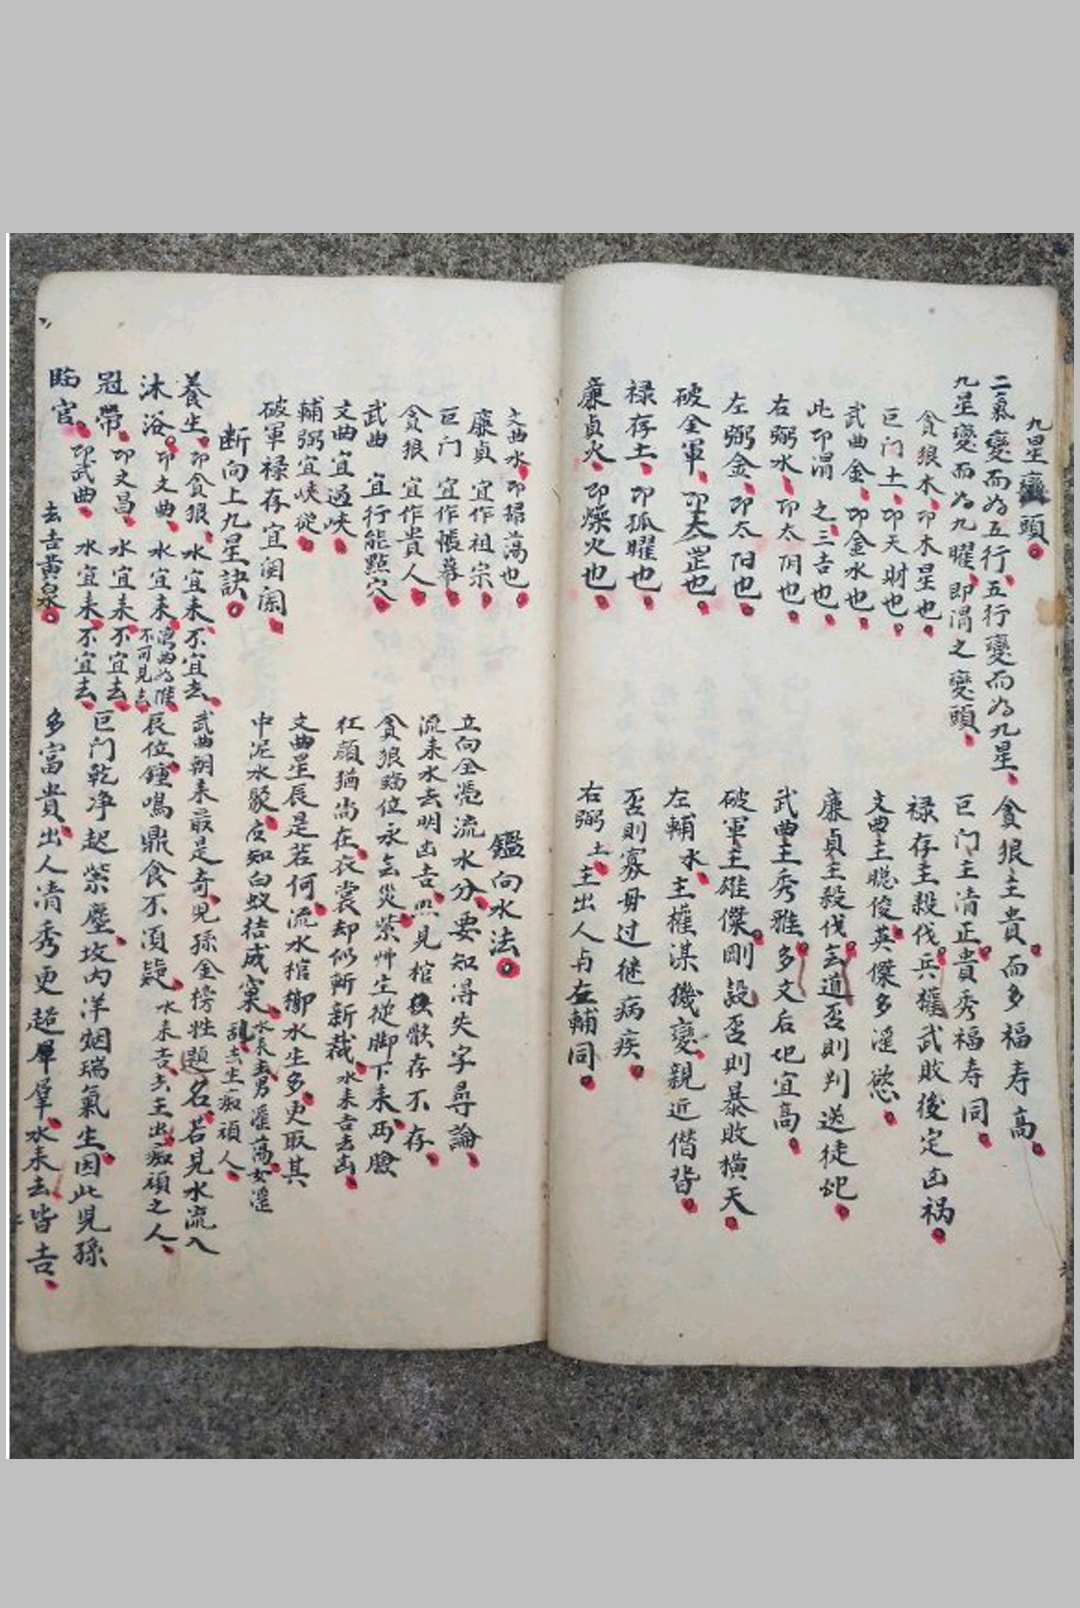 九星變頭。
二氣變而为五行、五行變而为九星、
九星變而为九曜、即渭之變頭、
貪狼木、卬木星也、
巨门土、卬天財也、
武曲金、卬金水也、
此卬渭之三吉也、
右弼水、卬太阴也、
左弼金、卬太阳也、
破全軍、卬天罡也、
禄存土、卬孤曜也、
廉貞火、卬燥火也、
貪狼主貴、而多福寿高、
巨门主清正、貴秀福寿同、
禄存主殺伐、兵權武敗後定凶祸、
文曲主聪俊、英傑多淫慾、
廉貞主殺伐、道否則判送徒
武曲主秀雅、多文后地宜高、
破軍主雄傑、剛毅否則暴敗横天、
左輔水、主權謀機變、親近偕皆、
否則寡母过继病疾、
右弼土、主出人与左輔同、
文曲水、卬掃蕩也、
廉貞 宜作祖宗、
巨门 宜作帳幕、
貪狼 宜作貴人、
武曲 宜行龍點穴、
文曲宜過峡、
輔弼宜峡從、
破軍禄存宜闌闲、
断向上九星訣。
養生、卬貪狼、水宜来、不宜去、
沐浴。卬文曲、水宜来、
不可見去
冠帶、卬文昌、水宜来、不宜去、
临官、卬武曲、水宜来、不宜去、
去吉黄泉。
鑑向水法。
立向全憑流水分、要知得失字尋論、
流来水去明凶吉、照見棺骸存不存、
貪狼臨位永無災、紫艸生從脚下来、两臉
红顔猶尚在、衣裳却似斬新裁、水来吉去凶、
文曲星辰是若何、流水棺御水生多、更取其
中泥水聚、应知白蚁结成窠、水来去男淫蕩女淫
乱、去生痴頑人、
武曲朝来最是奇、児孫金榜性題名、若見水流入
辰位、鍾鳴鼎食不須疑、水来吉、去主出痴頑之人、
巨门乾净起紫塵、坟内洋烟瑞氣生、因此児孫
多富貴、出人清秀更超羣、水来去皆吉、